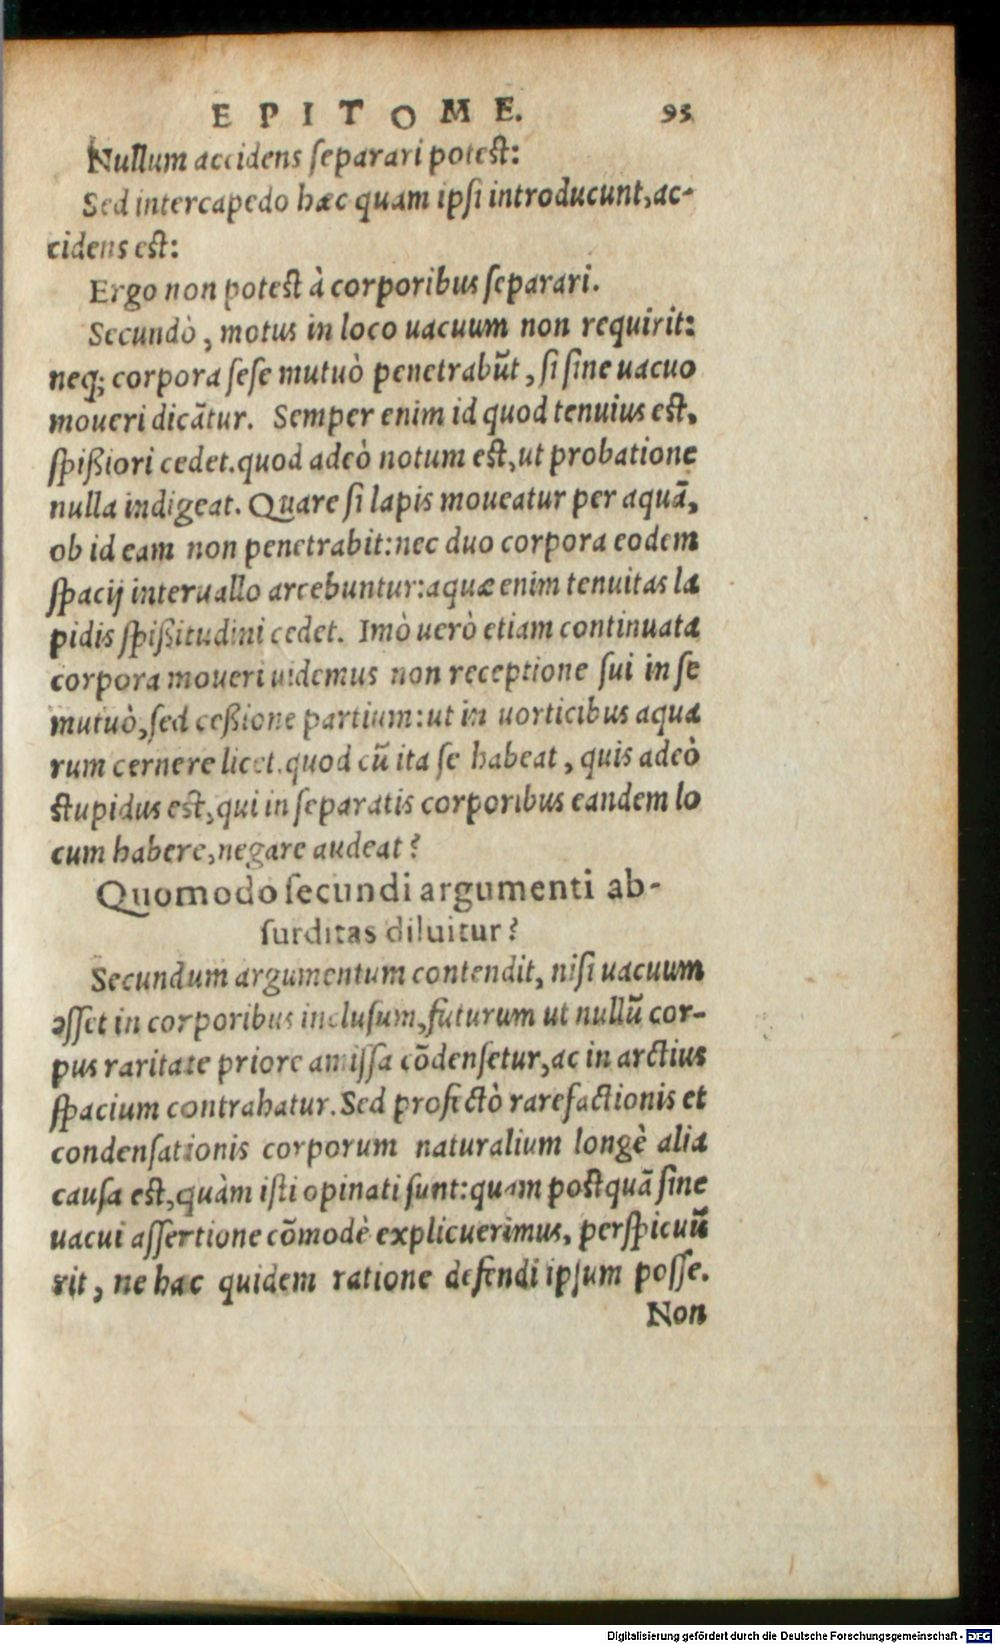 EPITOME. 95
Nullum accidens ſeparari poteſt:
Sed intercapedo hæc quam ipſi introducunt, ac-
cidens eſt:
Ergo non poteſt à corporibus ſeparari.
Secundò, motus in loco uacuum non requirit:
neq; corpora ſeſe mutuò penetrabūt, ſi ſine uacuo
moueri dicātur. Semper enim id quod tenuius eſt,
ſpißiori cedet. quod adeò notum eſt, ut probatione
nulla indigeat. Quare ſi lapis moueatur per aquā,
ob id eam non penetrabit: nec duo corpora eodem
ſpacij interuallo arcebuntur: aquæ enim tenuitas la
pidis ſpißitudini cedet. Imò uerò etiam continuata
corpora moueri uidemus non receptione ſui in ſe
mutuò, ſed ceßione partium: ut in uorticibus aqua
rum cernere licet. quod cū ita ſe habeat, quis adeò
ſtupidus eſt, qui in ſeparatis corporibus eandem lo
cum habere, negare audeat?
Quomodo ſecundi argumenti ab-
ſurditas diluitur?
Secundum argumentum contendit, niſi uacuum
eſſet in corporibus incluſum, futurum ut nullū cor-
pus raritate priore amiſſa cōdenſetur, ac in arctius
ſpacium contrahatur. Sed profectò rarefactionis et
condenſationis corporum naturalium longè alia
cauſa eſt, quàm iſti opinati ſunt: quam poſtquā ſine
uacui aſſertione cōmodè explicuerimus, perſpicuū
rit, ne hac quidem ratione defendi ipſum poſſe.
Non
Digitalisierung gefördert durch die Deutsche Forschungsgemeinschaft - DFG